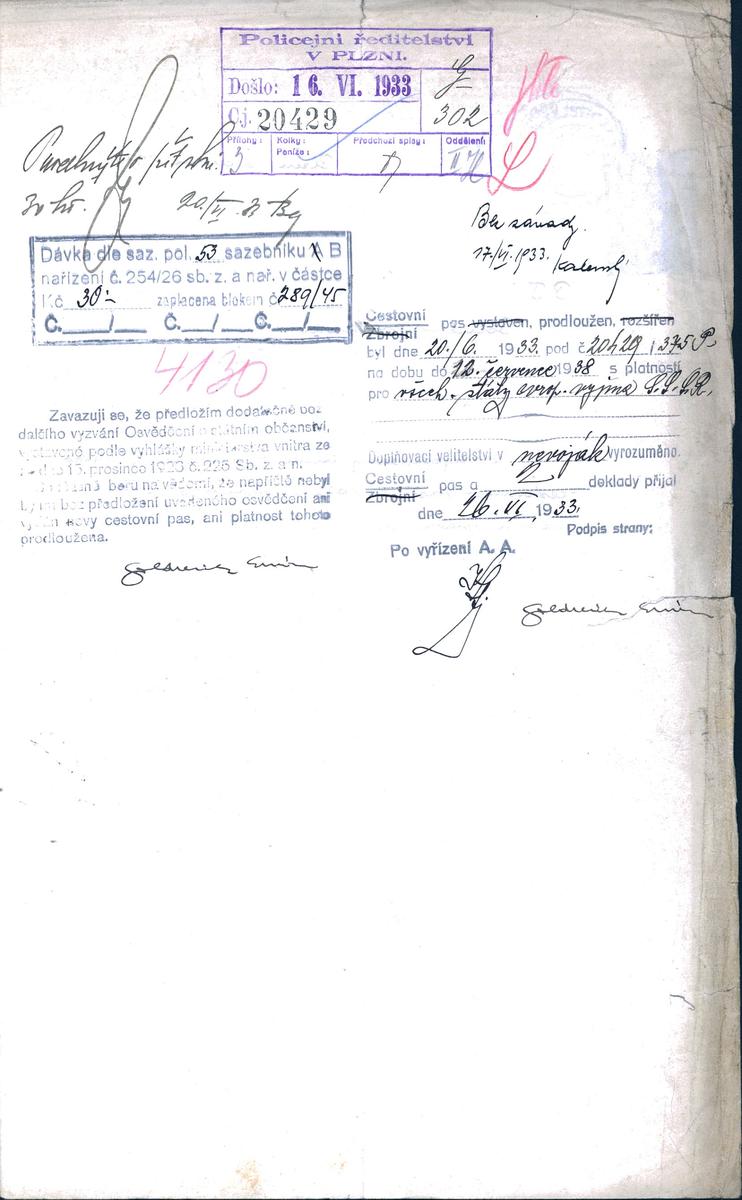 Policejní ředitelství
V PLZNI.
Došlo: 16. VI. 1933
Čj. 20429
G
302
Přílohy:
3
Kolky:
Peníze:
Předchozí spisy:
Oddělení:
30 Kč. 20./VI.
Bez závady.
17/VI. 1933.
Dávka dle saz. pol. 53 sazebníku A B
nařízení č. 254/26 sb. z. a nař. v částce
Kč 30.- zaplacena blokem č. 289/45
Č.___/__ Č.___/__ Č.___/__
4130
Zavazuji se, že předložím dodatečně bez
dalšího vyzvání Osvědčení o státním občanství,
vystavené podle vyhlášky ministerstva vnitra ze
15. prosince 1926 č. 225 Sb. z. a n.
beru na vědomí, že napříště nebyl
by mi bez předložení uvedeného osvědčení ani
vydán nový cestovní pas, ani platnost tohoto
prodloužena.
Cestovní
Zbrojní pas vystaven, prodloužen, rozšířen
byl dne 20./6. 1933. pod č 20429 / 375 P.
na dobu do 12. července 1938 s platností
pro všech. státy evrop. vyjma S.S.S.R.
Doplňovací velitelství v nevoják vyrozuměno.
Cestovní
Zbrojní pas a 2 doklady přijal
dne 26. VI. 1933.
Podpis strany:
Po vyřízení A. A.